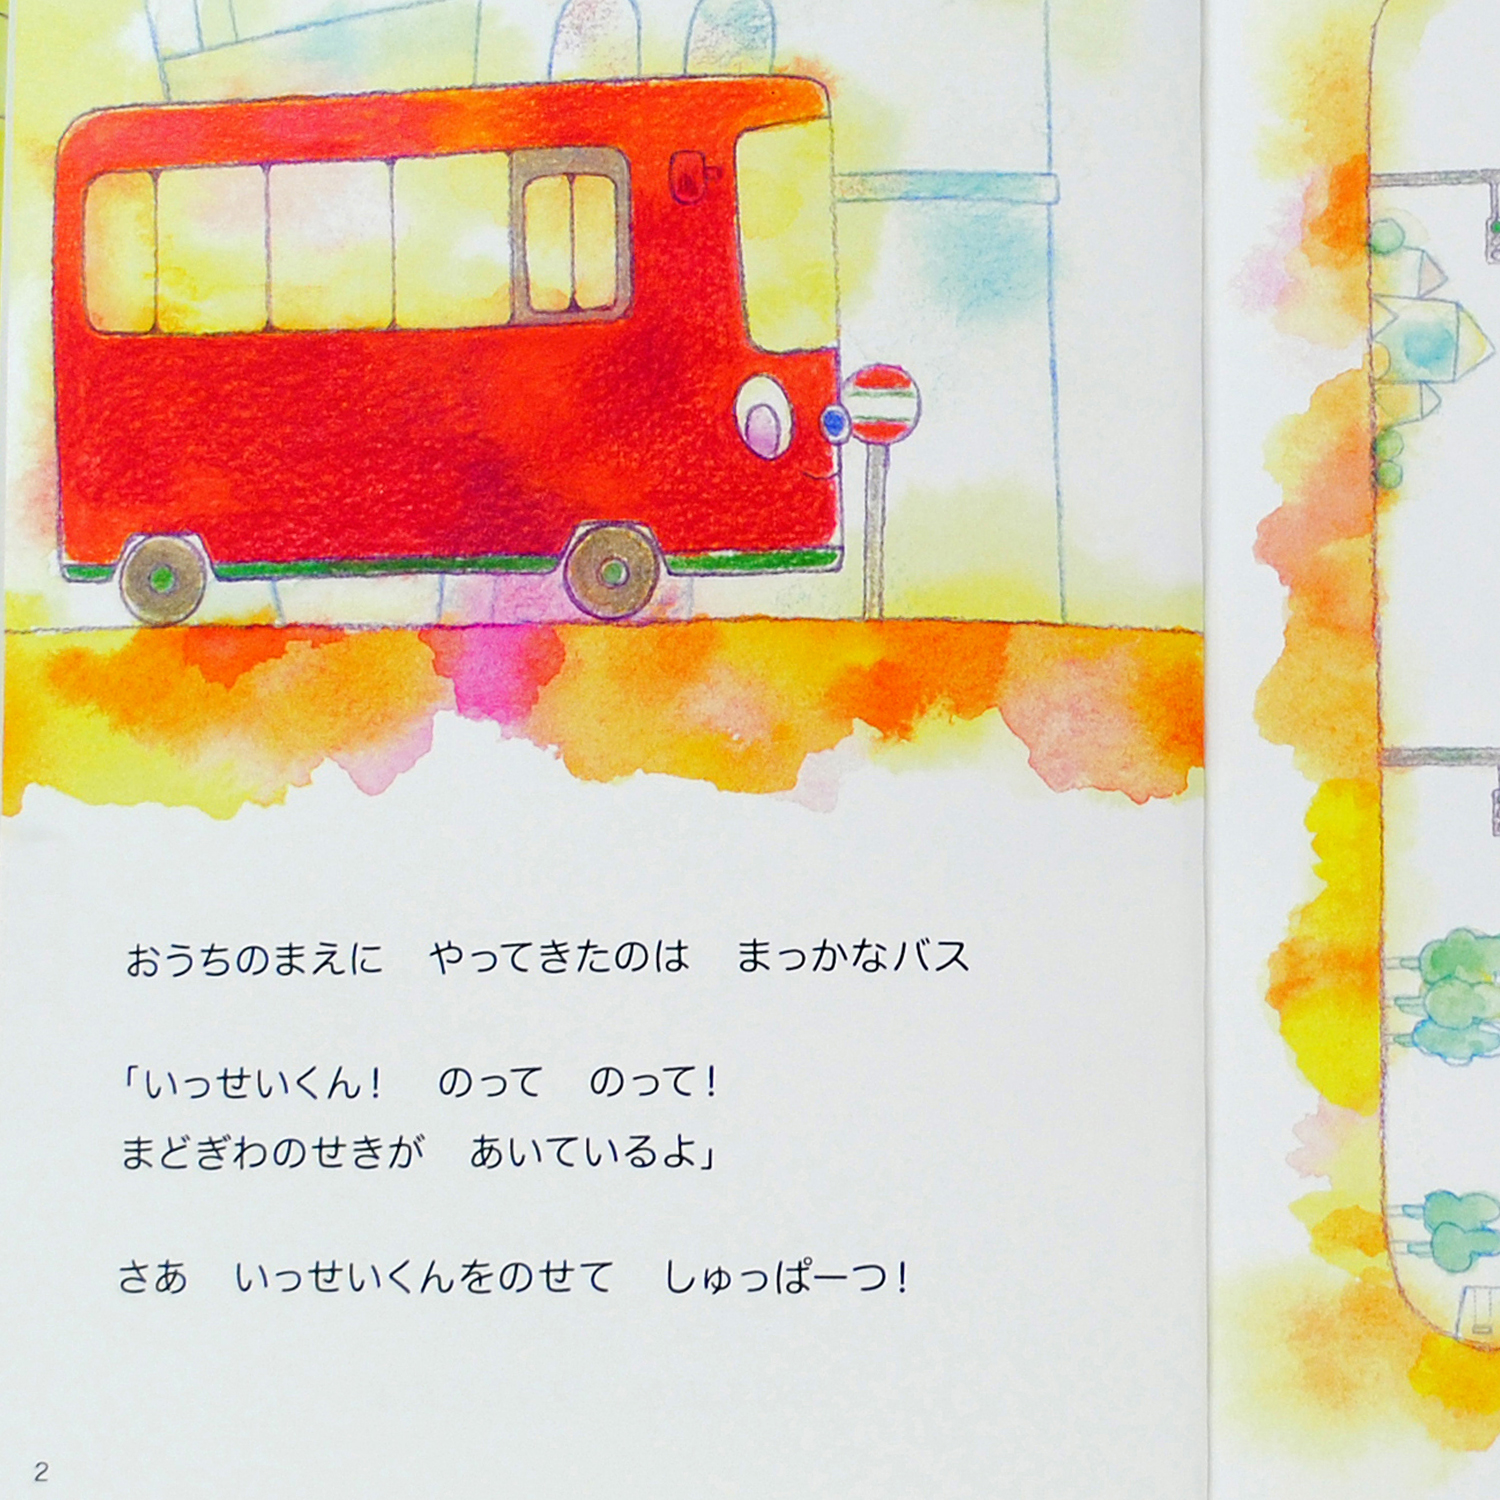 おうちのまえに　やってきたのは　まっかなバス
「いっせいくん！　のって　のって！
まどぎわのせきが　あいているよ」
さあ　いっせいくんをのせて　しゅっぱーつ！
2